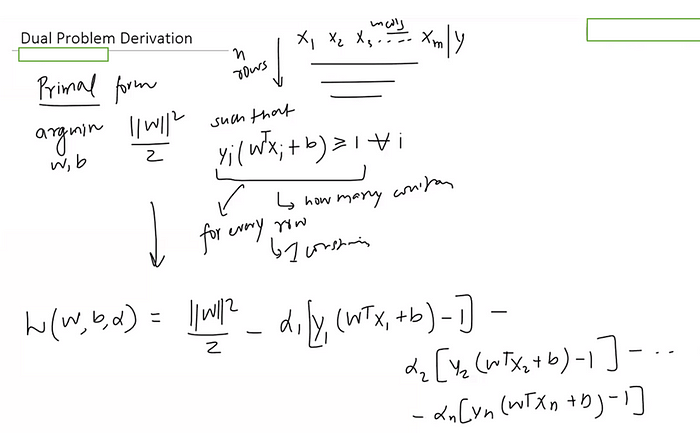 Dual Problem Derivation
n rows
x₁ x₂ x₃ ..... xₘ | y
Primal form
argmin w,b ||w||²/2 such that
yᵢ(wᵀxᵢ + b) ≥ 1 ∀ i
↳ how many
for every row
↳ 1
L(w, b, α) = ||w||²/2 − α₁[y₁(wᵀx₁ + b) − 1] −
α₂[y₂(wᵀx₂ + b) − 1] − ...
− αₙ[yₙ(wᵀxₙ + b) − 1]